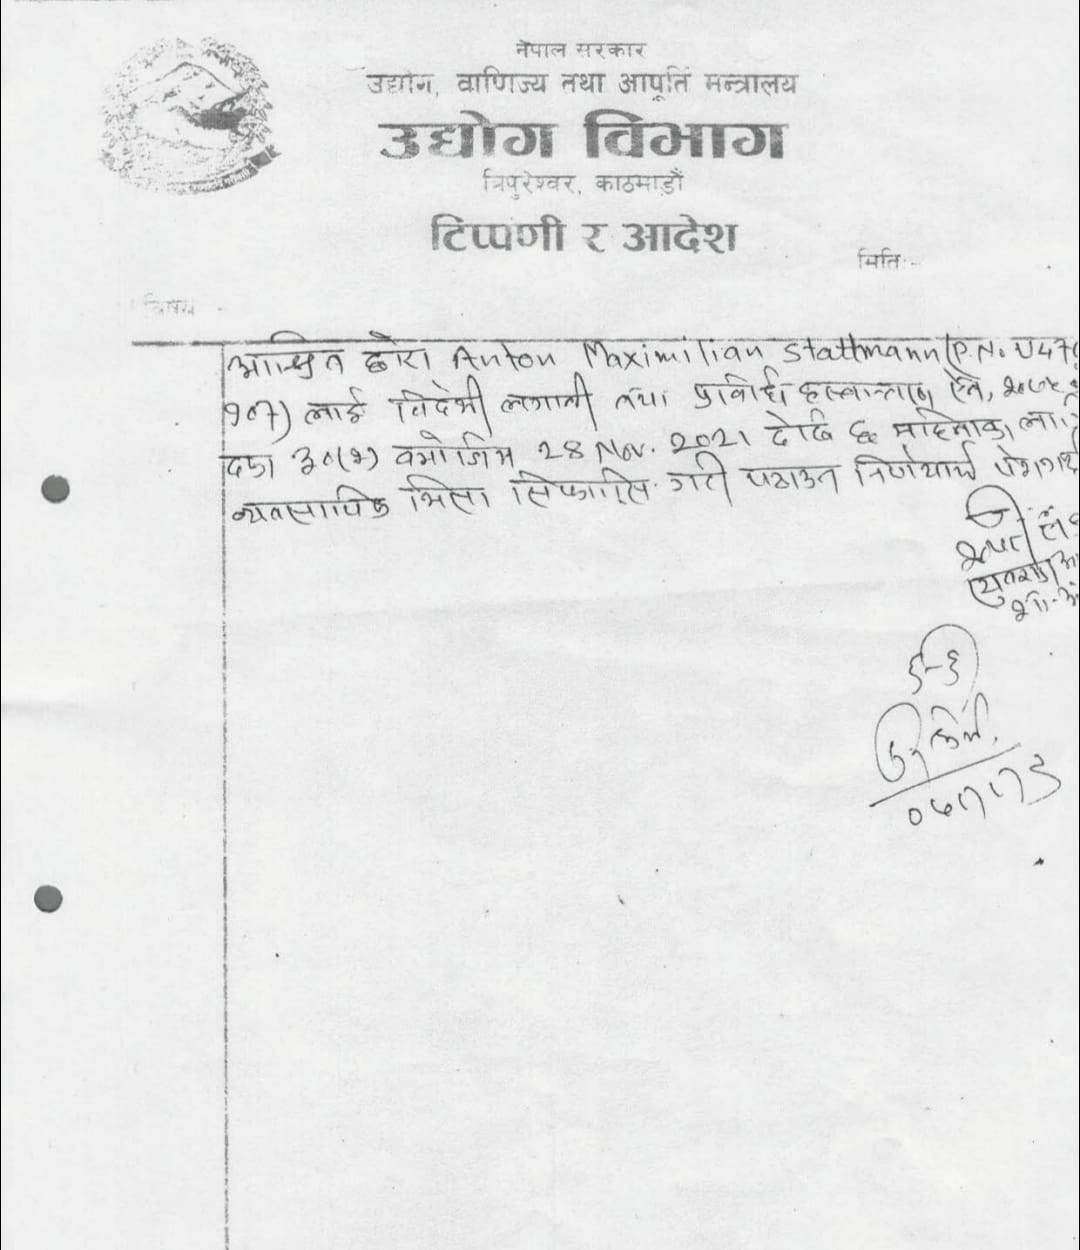 नेपाल सरकार
उद्योग, वाणिज्य तथा आपूर्ति मन्त्रालय
उद्योग विभाग
त्रिपुरेश्वर, काठमाडौं
टिप्पणी र आदेश
मिति:-
विषय -
आश्रित द्वारा Anton Maximilian Stattmann (P.No U47
907) लाई विदेशी लगानी तथा प्रविधि हस्तान्तरण ऐन, २०७५
दफा ३०(२) बमोजिम 28 Nov. 2021 देखि छ महिनाका
व्यवसायिक भिसा सिफारिस गरी पठाउन निर्णयार्थ